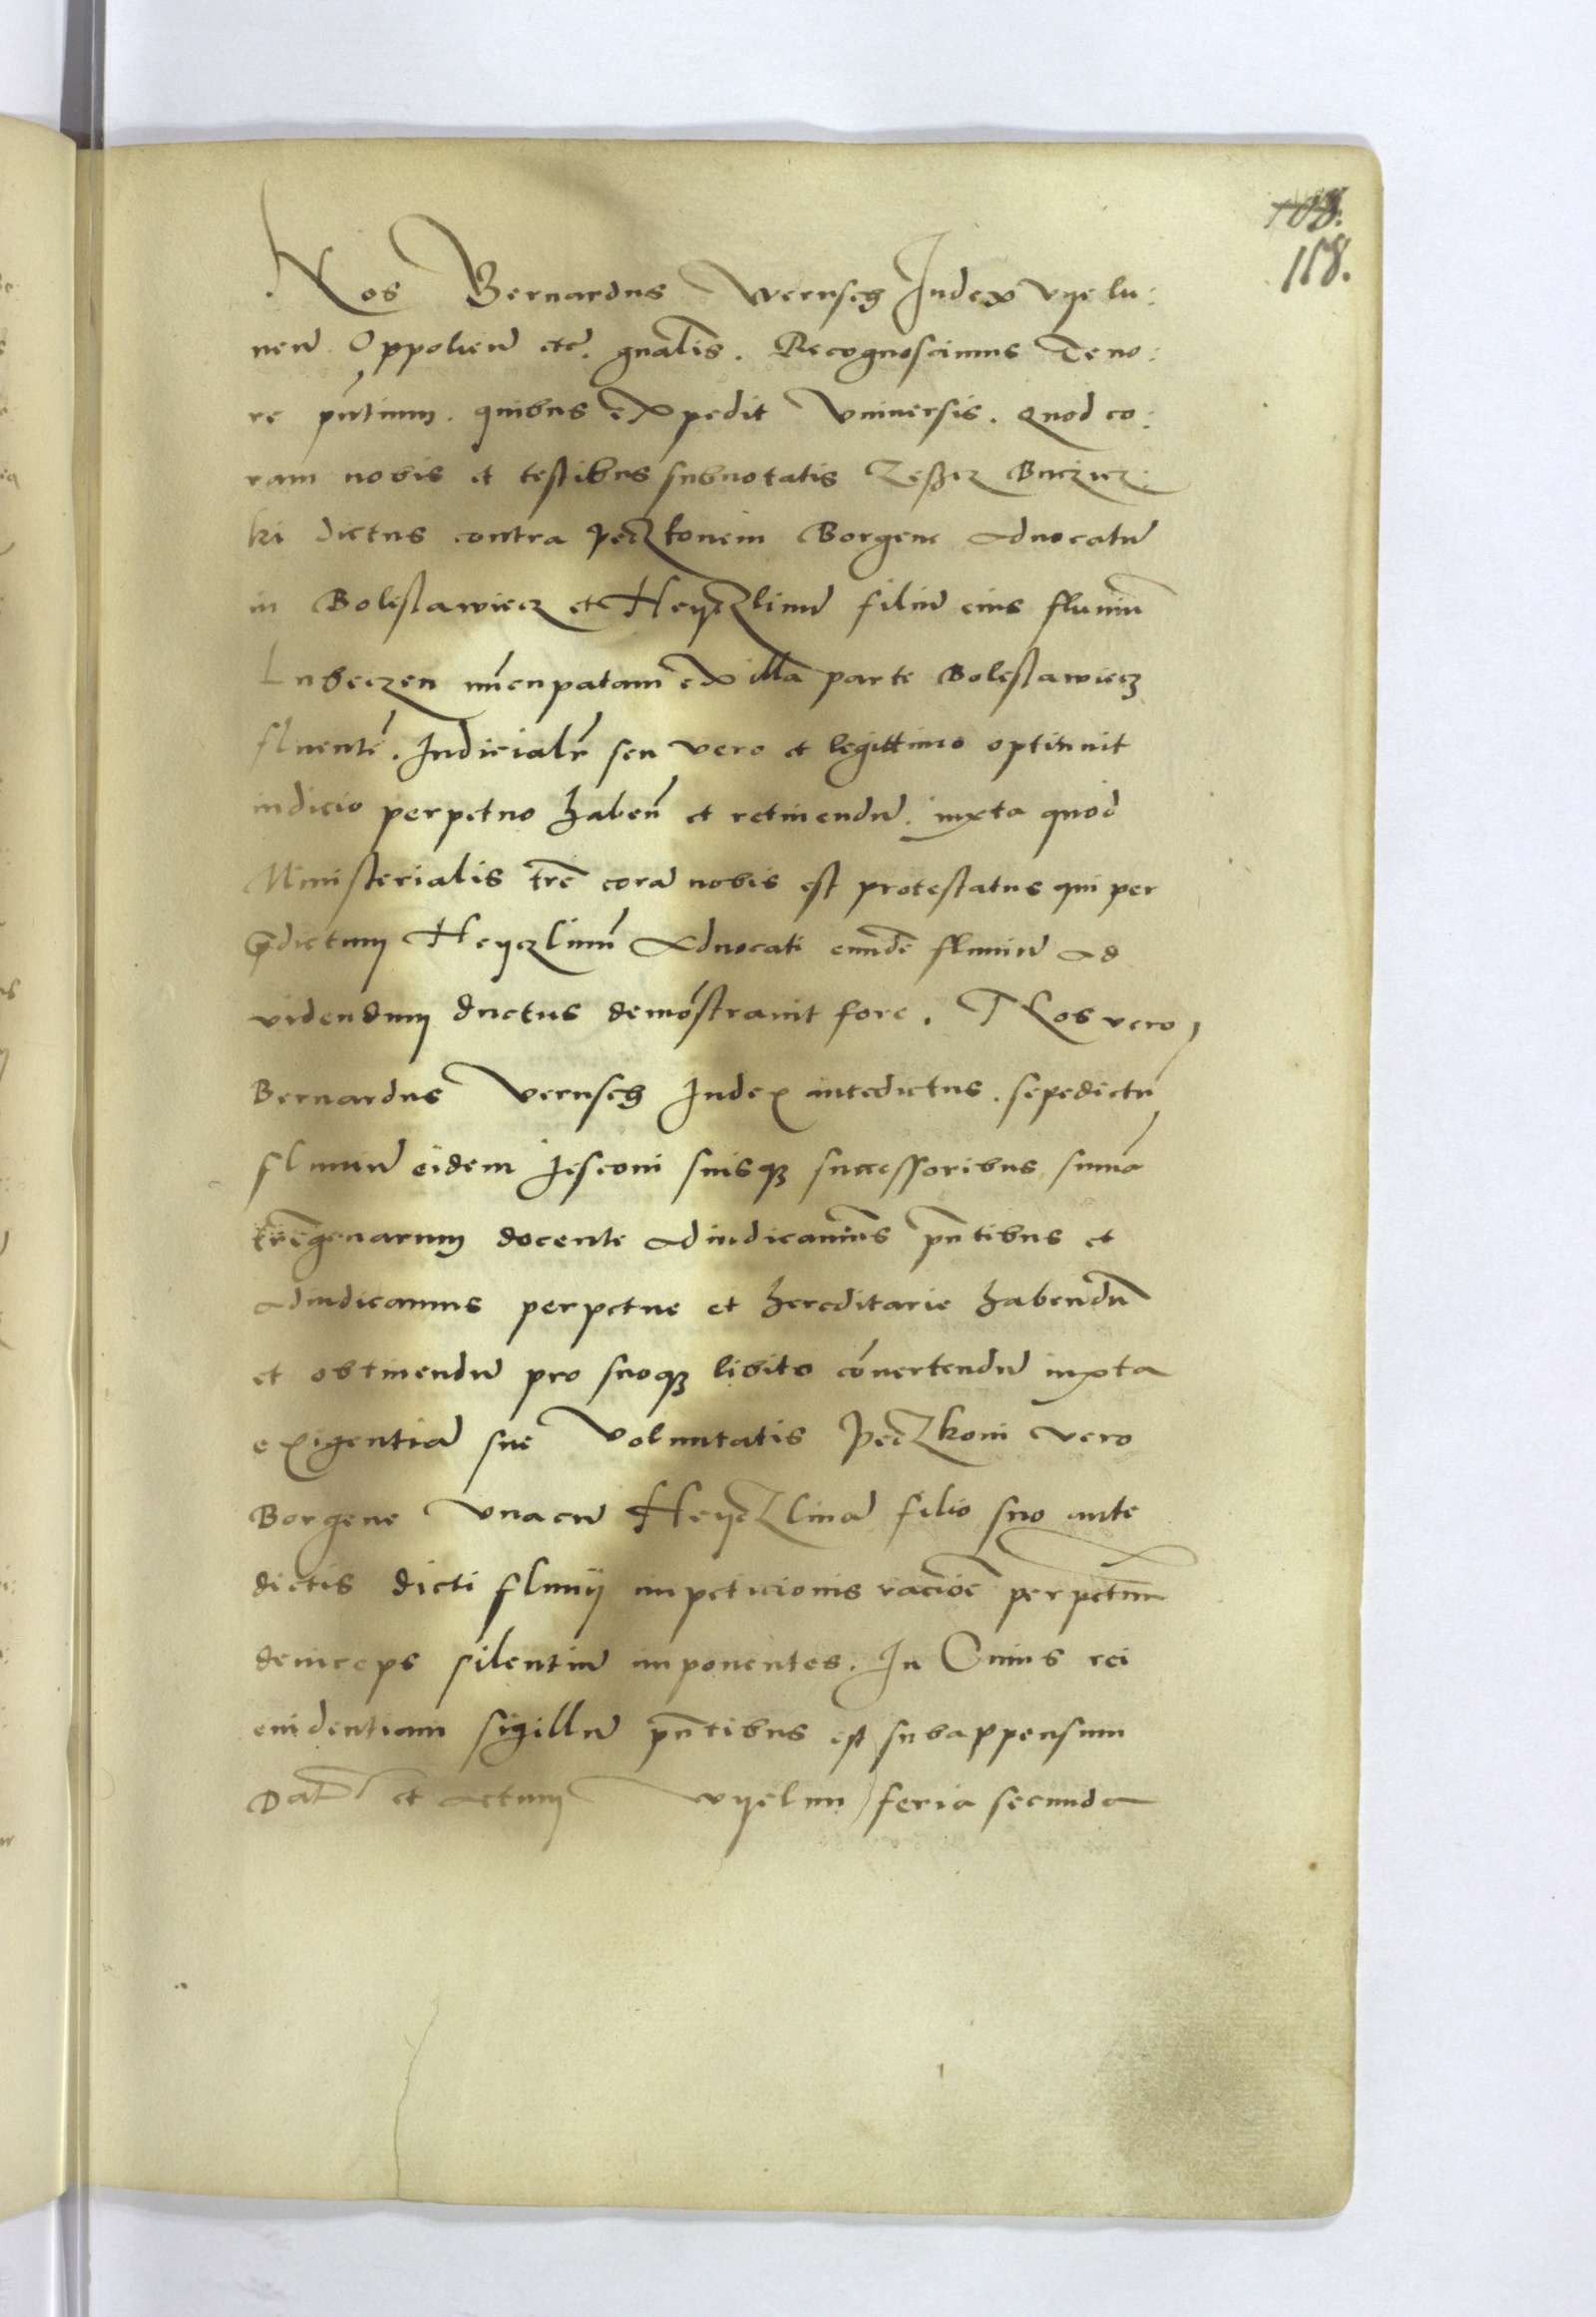 108.
118.
Nos Bernardus wernsch Judex vyelu:
neñ Oppolieñ etc̃. gnãlis. Recognoscimus Teno:
re pñtium. quibus expedit Vniuersis. Quod co:
ram nobis et testibus subnotatis Beczicz:
ki dictus contra peczkonem Borgene Aduocatũ
in Boleslawiecz et Heyczlinũ filiũ eius fluuiũ
Lubeczen nũcupatam ex illa parte Boleslawiecz
fluentẽ. Judicialr̃ seu vero et legittimo optinuit
iudicio perpetuo habeñ et retinendũ. iuxta quod
Ministerialis trẽ corã nobis est protestatus qui per
p̃dictum Heyczlinũ Aduocati eundẽ fluuiũ ad
videndum ductus demõstrauit fore. Nos vero
Bernardus Vernsch Judex antedictus. sepedictũ
fluuiũ eidem Jesconi suisqz successoribus summa
trr̃egenarum docente adiudicauimus pñtibus et
adiudicamus perpetue et hereditarie habendũ
et obtinendũ pro suoqz libito cõuertendũ iuxta
exigentiã sue Voluntatis Peczkoni vero
Borgene Vnacũ Heyczlinã filio suo ante
dictis dicti fluuij impeticionis raciõe perpetuũ
deinceps silentiũ imponentes. In Cuius rei
euidentiam sigillũ pñtibus est subappensum
Dat̃ et actum vyelun feria secunda